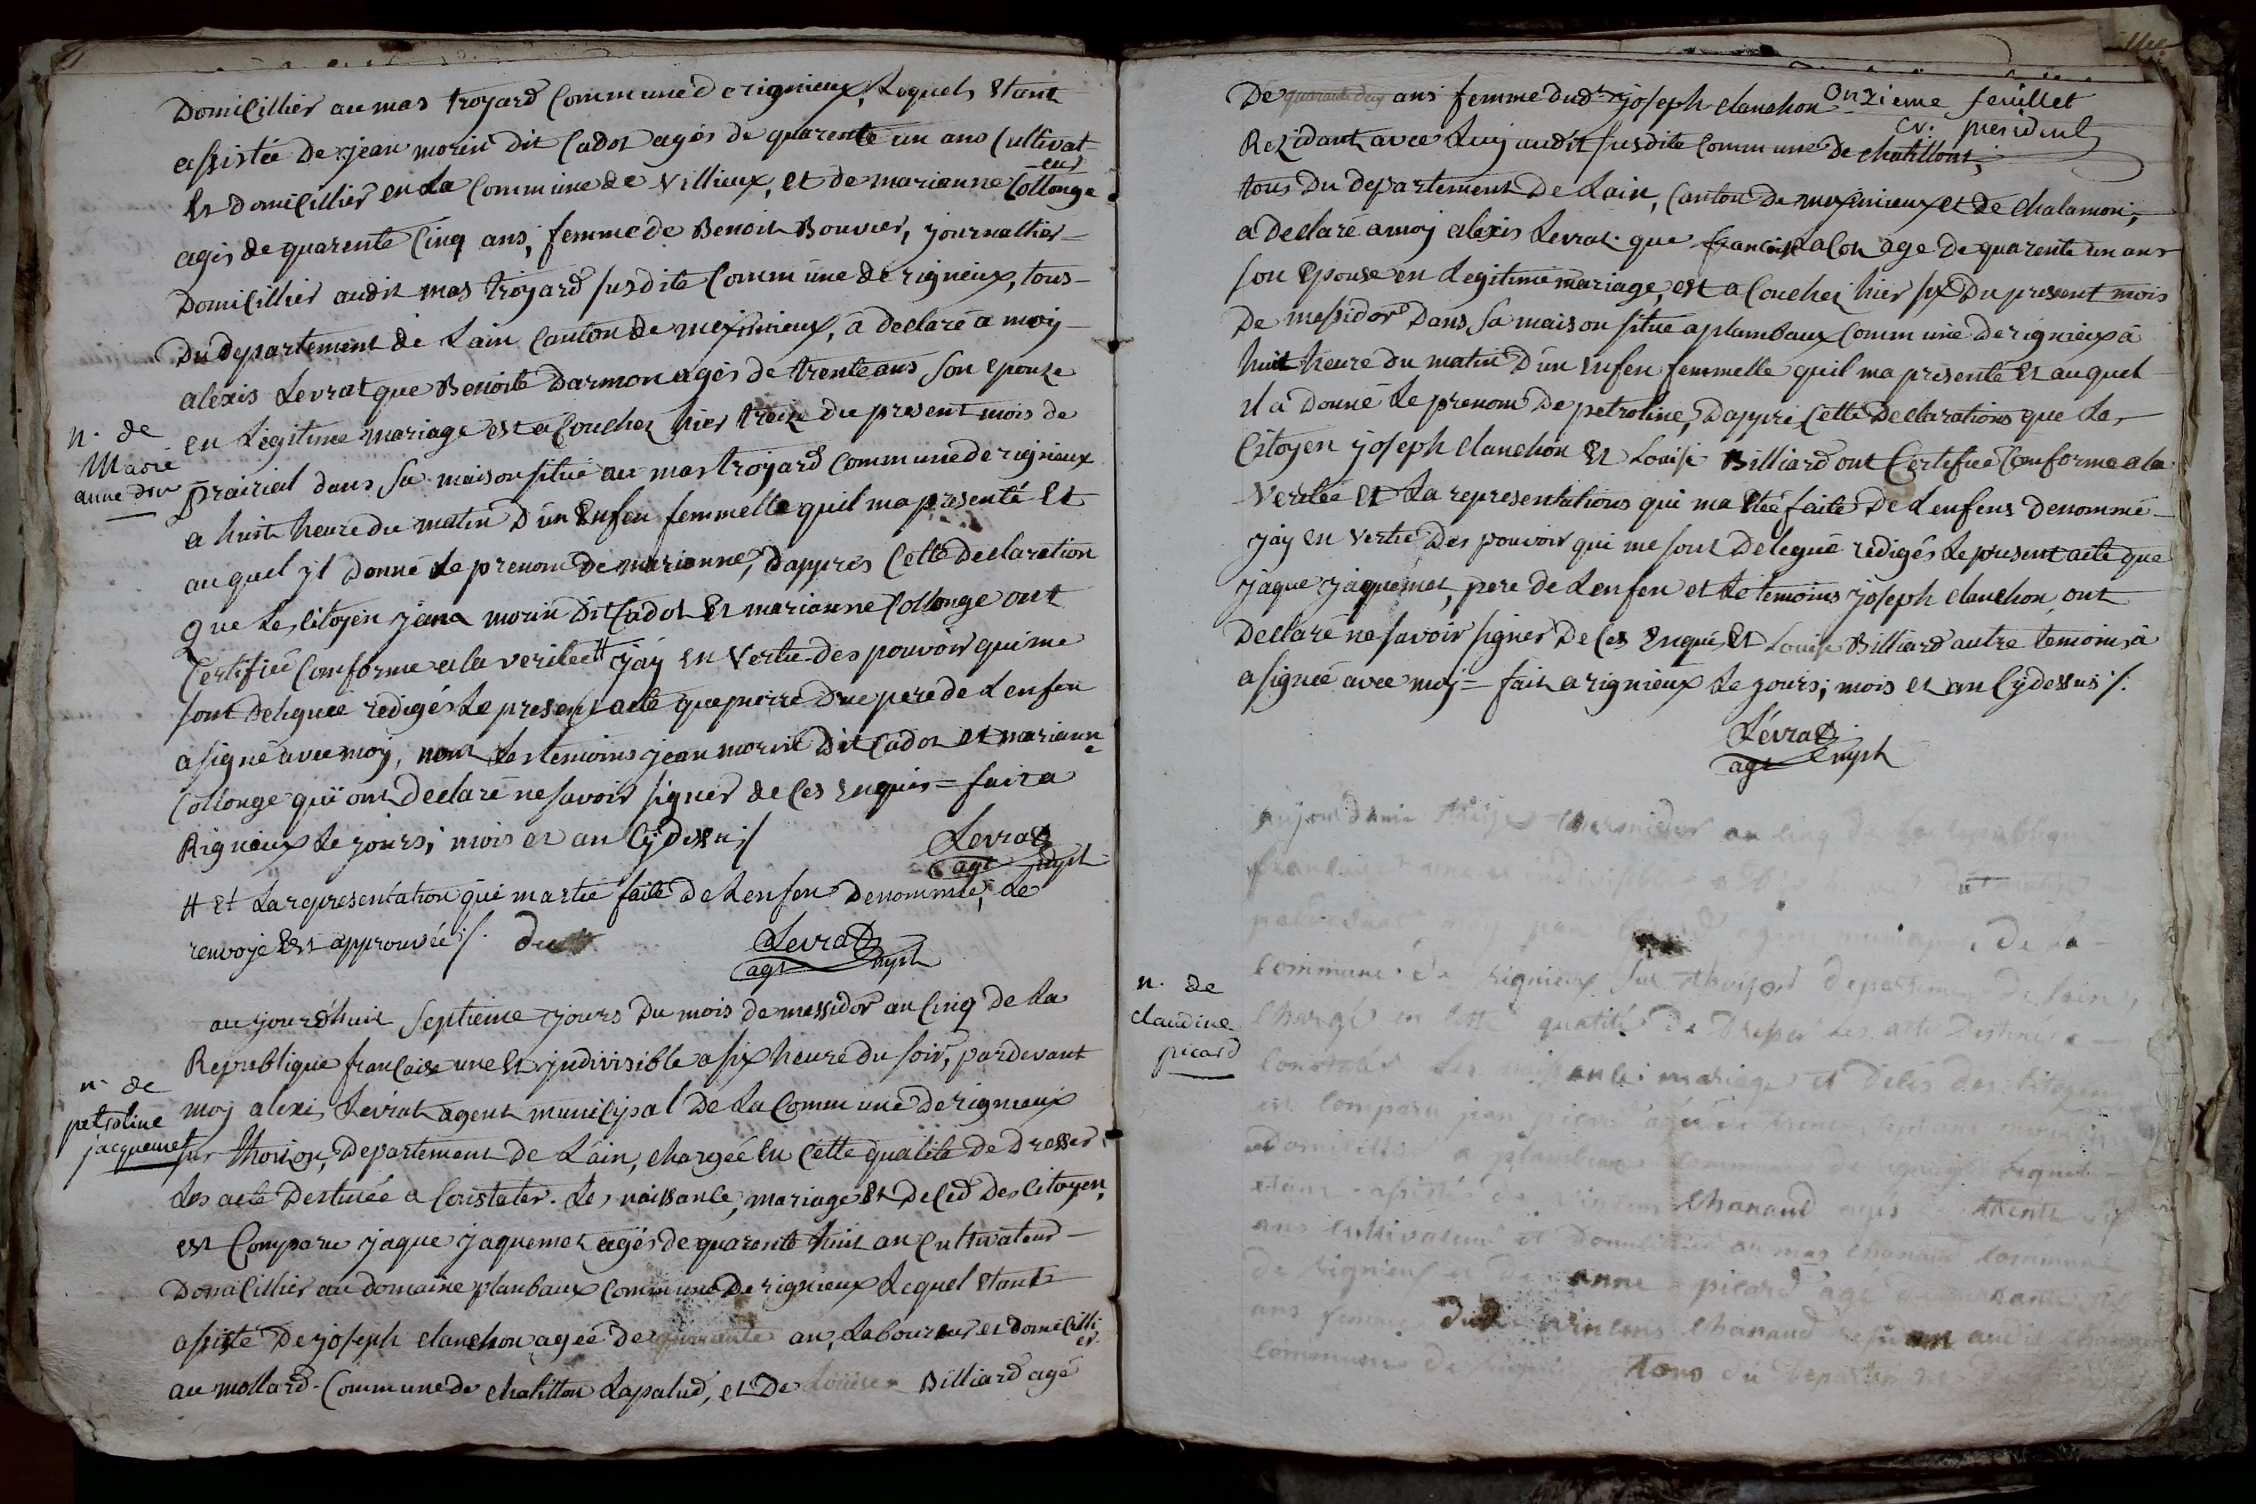 Domicillier au mas troyard Commune de rignieux, Lequels Etant
assistée de jean morin dit Cadot agés de quarente un ans Cultivat
eur
Et domicillier en La Commune de Villieux, et de marianne Collonge
agés de quarente Cinq ans, femme de Benoit Bouvier, journallier
Domicillier audit mas troyard susdite Commune de rignieux, tous
Du departement de Lain Canton de meximieux, a declaré a moy
alexis Levrat que Benoite Darmon agés de trente ans son epouze
n. de
Marie
anne duc
en Legitime mariage est a Couchez hier treize du present mois de
prairial dans sa maison situé au mas troyard commune de rignieux
a huit heure du matin D'un Enfen femmelle quil ma presenté Et
au quel jl Donné le prenom De marianne, Dapprés Cette Declaration
que Le Citoyen jean morin Dit Cadot Et marianne Collonge ont
Certifiée Conforme a la veritee # jay En Vertu des pouvoir qui me
sont Deleguée redigés Le present acte que pierre Duc pere de Lenfen
a signé avec moy, non Les temoins jean morin Dit Cadot et mariann
e
Collonge qui ont Declaré ne savoir signer de Ces Enquis = fait a
Rignieux Le jours, mois et an Cydessus /
Levrat
agt mpl
# Et La representation qui ma etée faite De Lenfen Denommée, Le
renvoye Est approuvée /. duc
Levrat
agt mpl
aujourdhuit septieme jours Du mois de messidor an Cinq de La
Republique française une Et jndivisible a six heure du soir, pardevant
n. de
petroline
jacquemet
moy alexis Levrat agent municipal De La Commune De rignieux
sur thoizon, Departement De Lain, chargée En Cette qualité De Dresser
Les acte Destinée a Constater Les naissance, mariage Et Deced Des Citoyen,
est Comparu jaque jaquemet agés de quarente huit an Cultivateur
Domicillier au domaine planbaux Commune De rignieux Lequel Etant
assisté De joseph clanchon agée De quarante an, Laboureur et domicilli
er
au mollard Commune de chatillon Lapalud, et De Louise Billiard agé
Onzieme feuillet
cv. president
De quarante deux ans femme dud. joseph clanchon
Rezidant avec Luy audit susdite Commune De chatillons,
tous Du departement De Lain, Canton De meximieux et de chalamon,
a Declaré a moy alexis Levrat que françoise Lacon age de quarente un ans
son Epouse en Legitime mariage, est a Couchez hier six Du present mois
De messidor Dans, sa maison situe a planbaux Commune De rignieux a
huit heure du matin D'un Enfen femmelle quil ma presenté Et auquel
il a Donné Le prenom De petroline, Dapprés Cette Declarations que Le,
Citoyen joseph clanchon Et Louise Billiard ont Certifiée Conforme a la
Veritée Et La representations qui ma Etée faite De Lenfens Denommé
jay En Vertu Des pouvoir qui me sont Deleguée redigés Le present acte que
jaque jaquemet, pere De Lenfen et Le temoins joseph clanchon, ont
Declaré ne savoir signer De Ces Enquis, Et Louise Billiard autre temoins a
a signée avec moy = fait a rignieux Le jours, mois et an Cydessus /.
Levrat
agt mpl
aujourdhui thermidor an Cinq De La Republique
française une et
De La
n. de
claudine
picard
Commune De rignieux sur thoizon Departement De Lain,
Chargé en Cette qualité De Dresser Les acte Destinée a
Constater Les naissance mariage et Décés des Citoyen
est Comparu jean picard
Domicillier a planbaux Commune De rignieux Lequel
Etant assisté de Vincent Chanaud agés De trente
ans Cultivateur et Domicillier au mas Chanaud Commune
De rignieux et De anne picard agé
ans femme Dudit Vincent Chanaud
Commune De rignieux tous du Departement